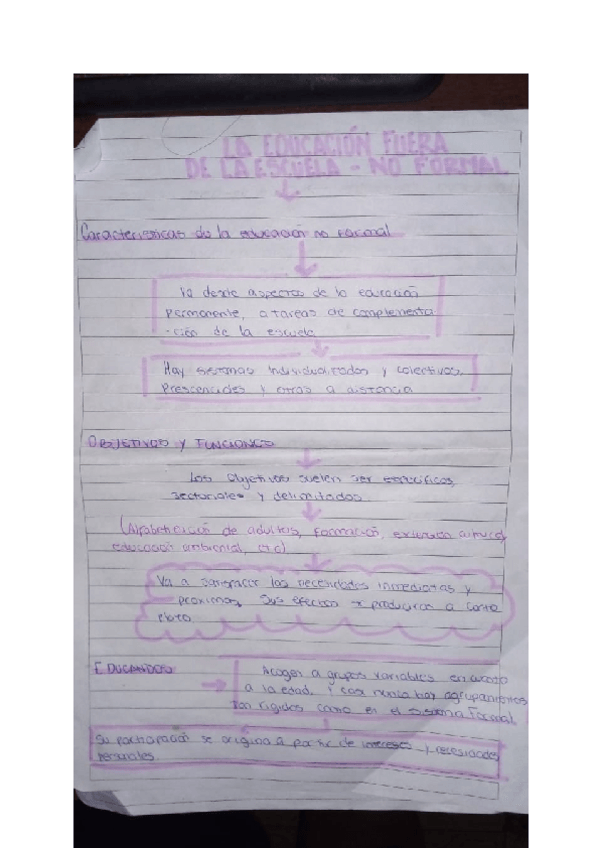 LA EDUCACIÓN FUERA
DE LA ESCUELA - NO FORMAL
Características de la educación no formal
Va desde aspectos de la educación
permanente, a tareas de complementa
-ción de la escuela
Hay sistemas individualizados y colectivos,
Prescenciales y otros a distancia
OBJETIVOS Y FUNCIONES
Los objetivos suelen ser específicos,
sectoriales y delimitados.
(Alfabetización de adultos, formación, extensión cultural,
educación ambiental, etc)
Va a satisfacer las necesidades inmediatas y
proximas, sus efectos se producirán a corto
plazo
EDUCANDOS
Acogen a grupos variables en cuanto
a la edad, Y casi nunca hay agrupamientos
tan rigidos como en el sistema Formal
Su participación se origina a partir de intereses y necesidades
personales.